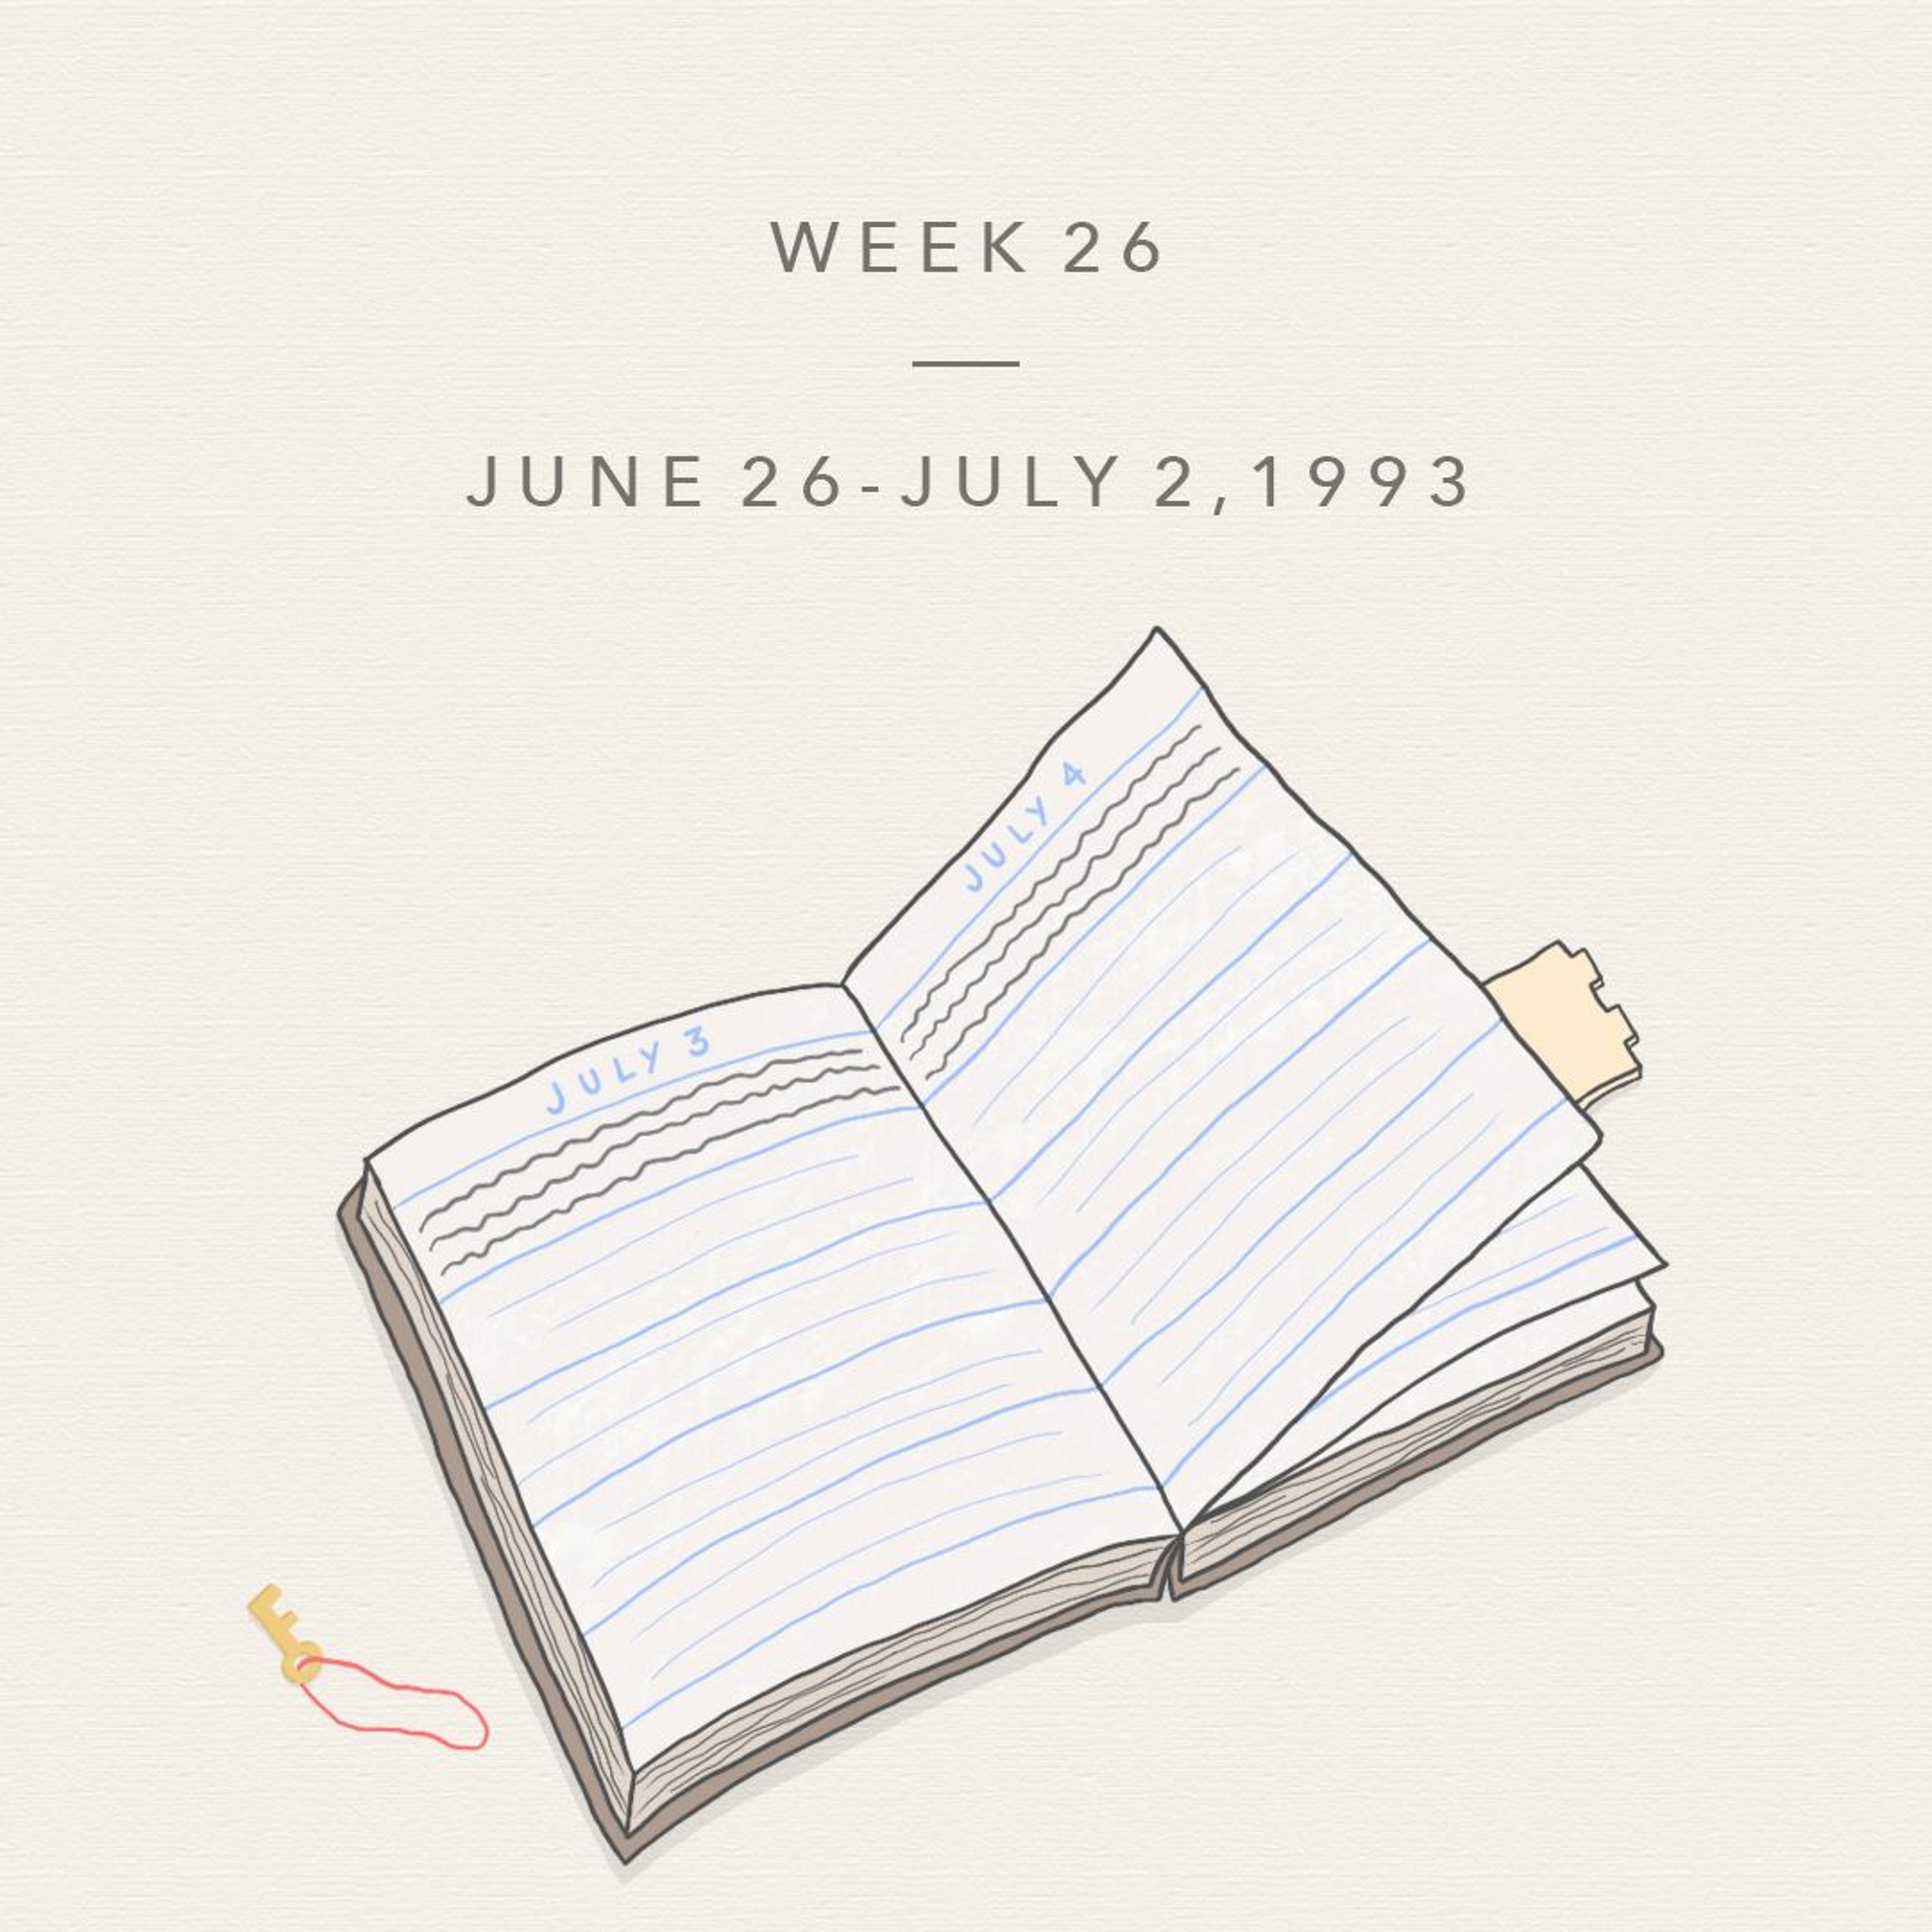 WEEK 26
JUNE 26-JULY 2,1993
JULY 3
JULY 4